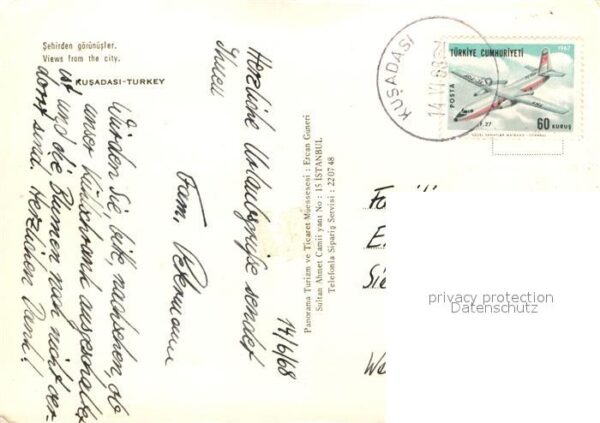 Şehirden görünüşler.
Views from the city.
KUŞADASI-TURKEY
14/6/68
Herzliche Urlaubsgrüße sendet
Ihnen
Fam.
Würden Sie bitte nachsehen, ob
unser Kühlschrank ausgeschaltet
ist und die Blumen noch nicht ver-
dorrt sind. Herzlichen Dank!
Panorama Turizm ve Ticaret Müessesesi : Ercan Guneri
Sultan Ahmet Camii yanı No : 15 İSTANBUL
Telefonla Sipariş Servisi : 22 07 48
KUŞADASI
14 VI 68
1967
TÜRKİYE CUMHURİYETİ
POSTA
F.27
60 KURUŞ
Sie
privacy protection
Datenschutz